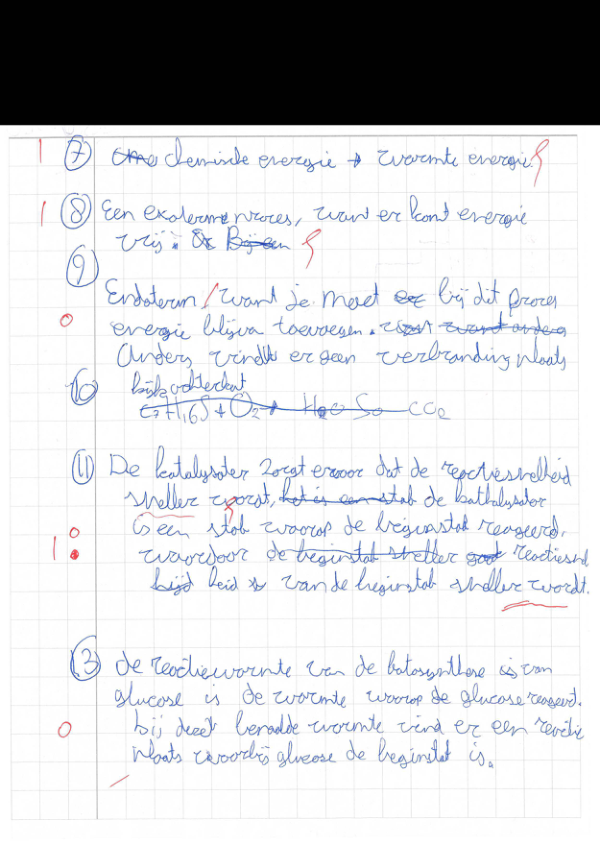 1 7 chemische energie → warmte energie.
1 8 Een exoterme proces, want er komt energie
vrij.
9
Endoterm, want je moet bij dit proces
0 energie blijven toevoegen.
Anders vindt er geen verbranding plaats
10 kijk achterkant
C7H16S + O2 → H2O So CO2
11 De katalysator zorgt ervoor dat de reactiesnelheid
sneller wordt, het is een stof de kathalysator
0 is een stof waarop de beginstof reageerd,
1 waardoor de beginstof sneller reactiesnel
heid van de beginstof sneller wordt.
13 de reactiewarmte van de fotosynthese is van
glucose is de warmte waarop de glucose reageerd.
0 bij deze warmte vind er een reactie
plaats waarbij glucose de beginstof is.